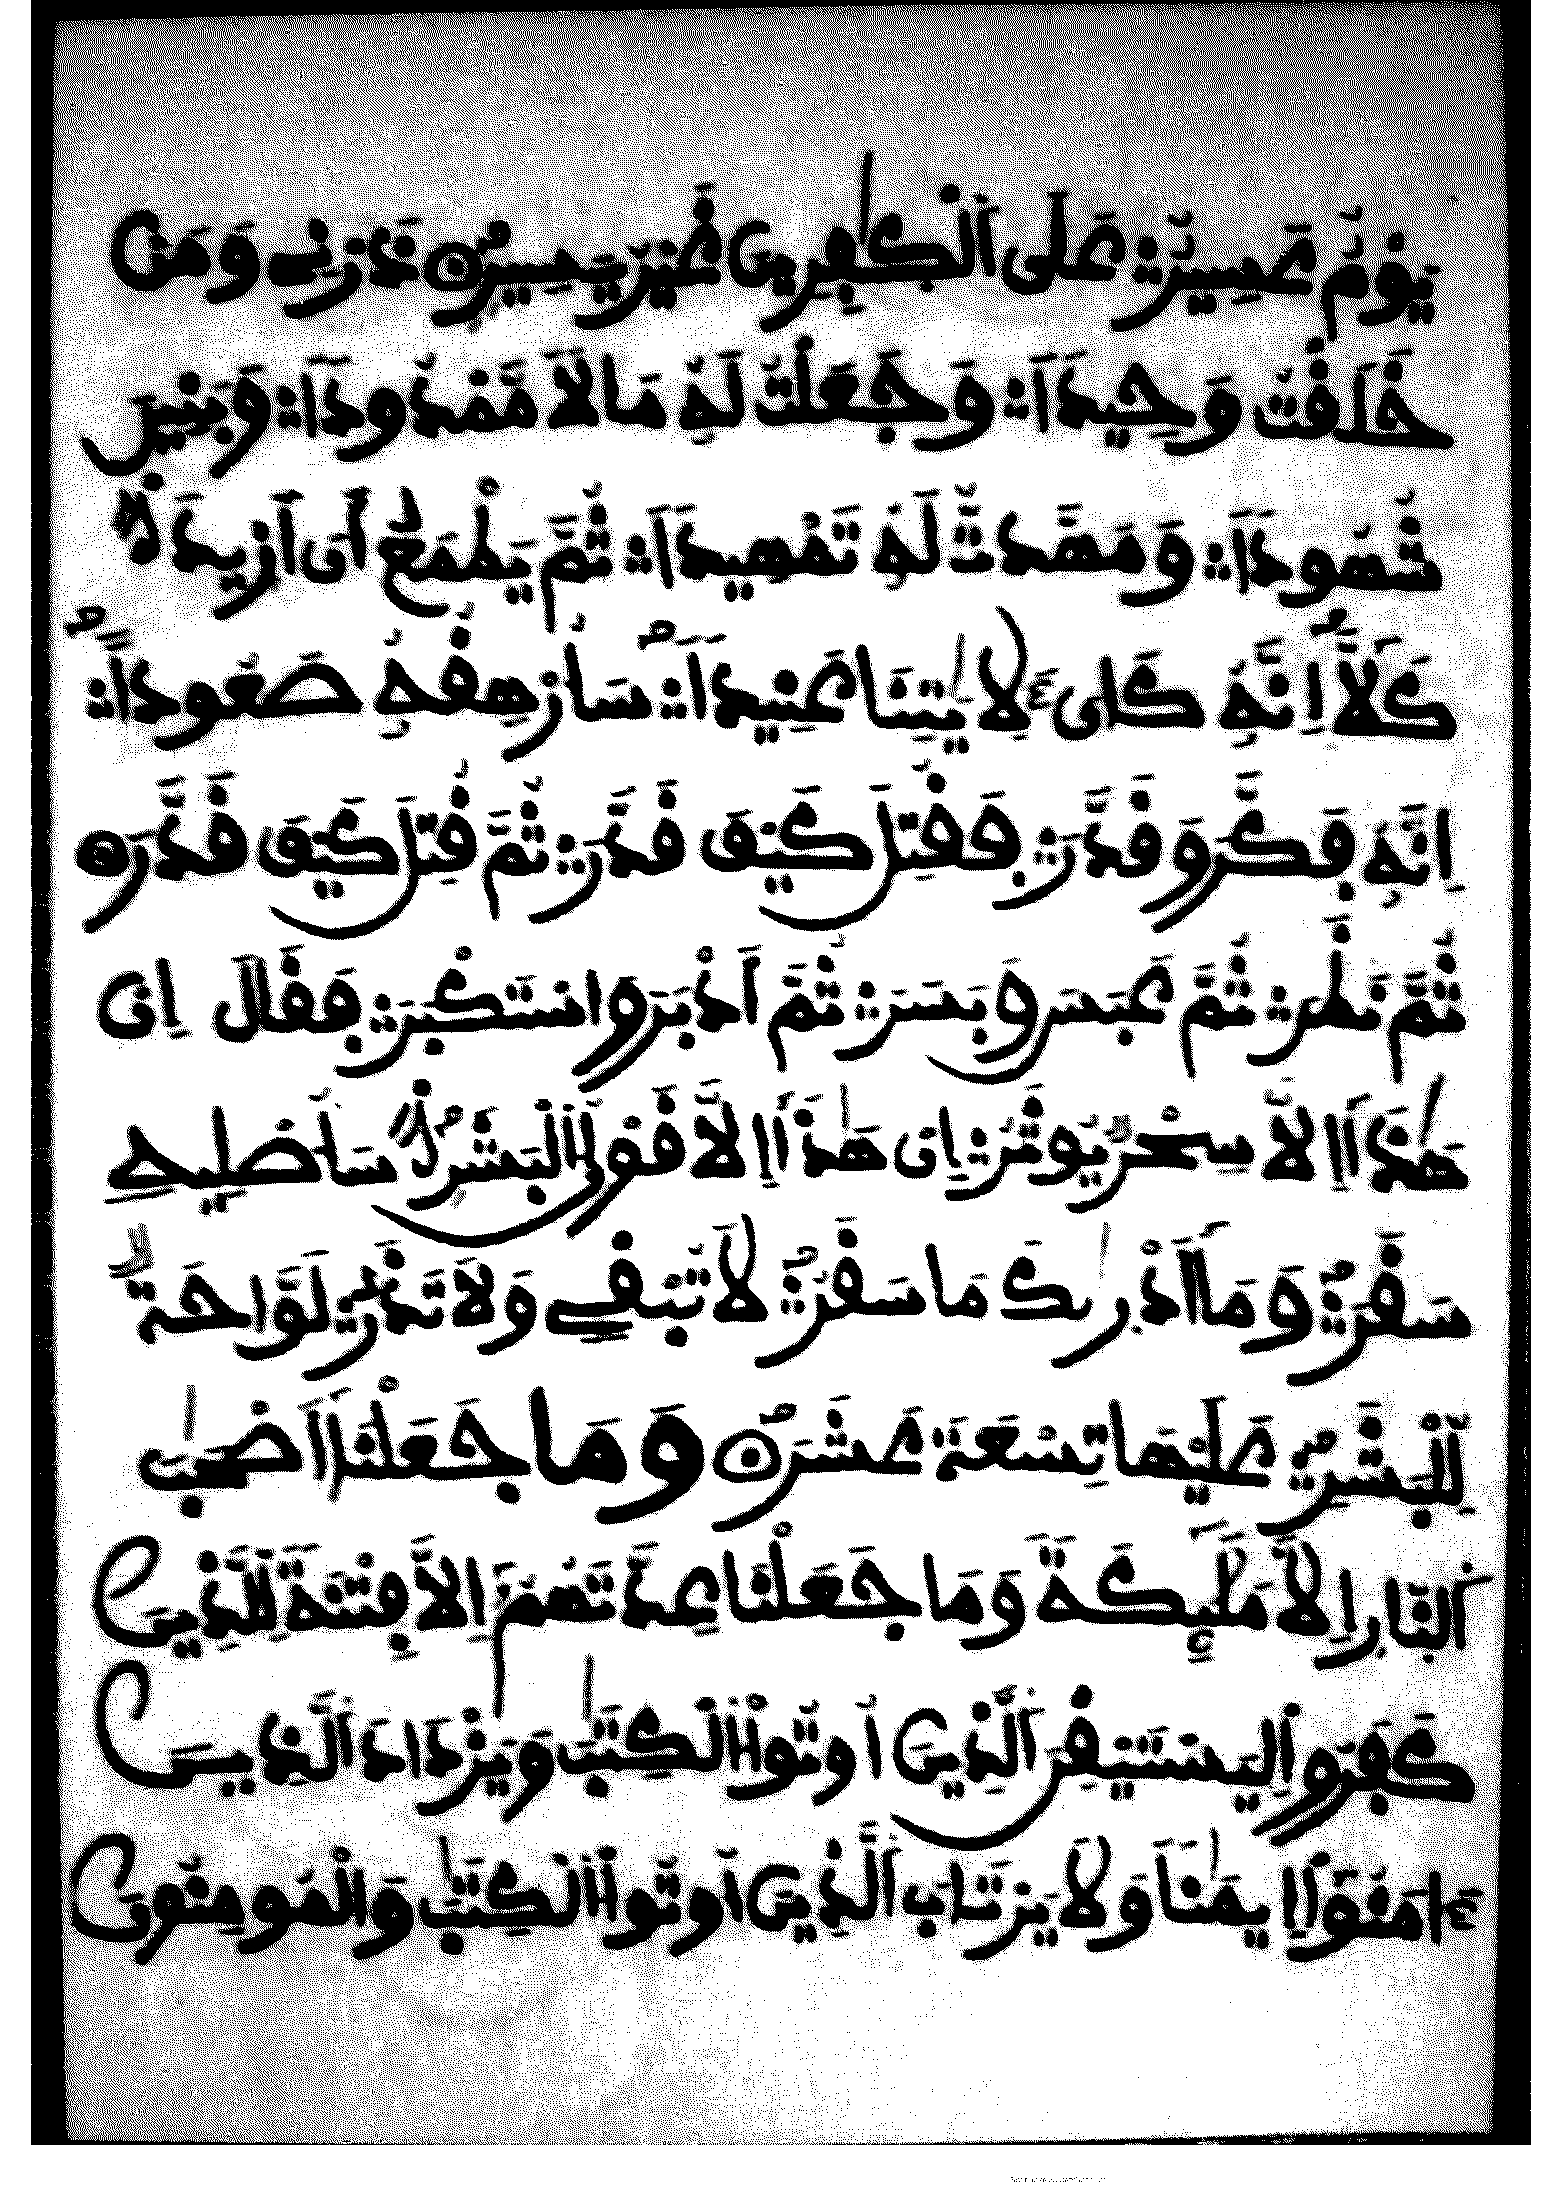 يَوْمٌ عَسِيرٌ عَلَى ٱلْكَٰفِرِينَ غَيْرُ يَسِيرٍ ذَرْنِي وَمَنْ
خَلَقْتُ وَحِيداً وَجَعَلْتُ لَهُۥ مَالاً مَّمْدُوداً وَبَنِينَ
شُهُوداً وَمَهَّدتُّ لَهُۥ تَمْهِيداً ثُمَّ يَطْمَعُ أَنْ أَزِيدَ
كَلَّا إِنَّهُۥ كَانَ لِأَيَٰتِنَا عَنِيداً سَأُرْهِقُهُۥ صَعُوداً
إِنَّهُۥ فَكَّرَ وَقَدَّرَ فَقُتِلَ كَيْفَ قَدَّرَ ثُمَّ قُتِلَ كَيْفَ قَدَّرَ
ثُمَّ نَظَرَ ثُمَّ عَبَسَ وَبَسَرَ ثُمَّ أَدْبَرَ وَاسْتَكْبَرَ فَقَالَ إِنْ
هَٰذَا إِلَّا سِحْرٌ يُوثَرُ إِنْ هَٰذَا إِلَّا قَوْلُ الْبَشَرِ سَأُصْلِيهِ
سَقَرَ وَمَا أَدْرَىٰكَ مَا سَقَرُ لَا تُبْقِي وَلَا تَذَرُ لَوَّاحَةٌ
لِّلْبَشَرِ عَلَيْهَا تِسْعَةَ عَشَرَ وَمَا جَعَلْنَا أَصْحَٰبَ
ٱلنَّارِ إِلَّا مَلَٰٓئِكَةً وَمَا جَعَلْنَا عِدَّتَهُمْ إِلَّا فِتْنَةً لِّلَّذِينَ
كَفَرُوا لِيَسْتَيْقِنَ ٱلَّذِينَ أُوتُوا ٱلْكِتَٰبَ وَيَزْدَادَ ٱلَّذِينَ
ءَامَنُوا إِيمَٰناً وَلَا يَرْتَابَ ٱلَّذِينَ أُوتُوا ٱلْكِتَٰبَ وَالْمُومِنُونَ